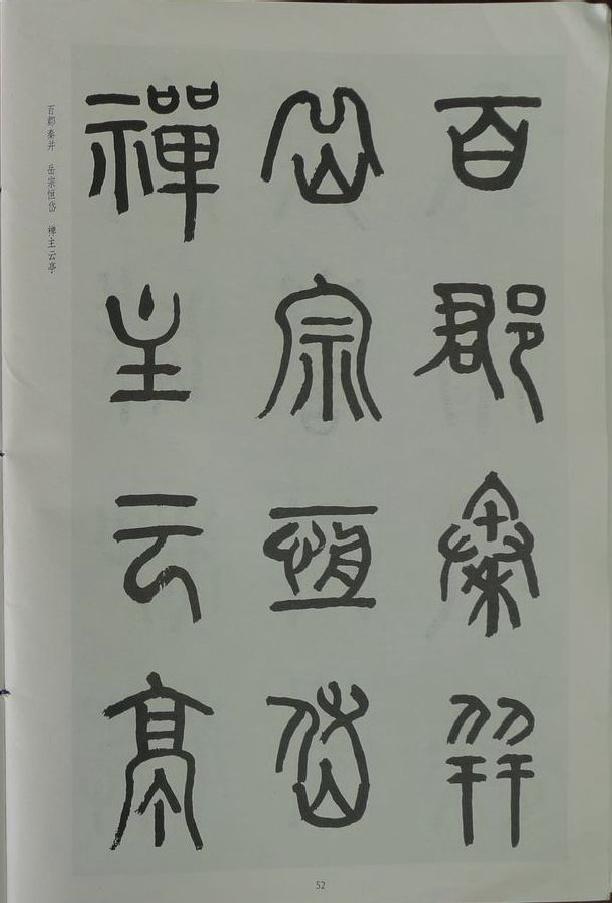 百郡秦并
岳宗恒岱
禪主云亭
百郡秦并 岳宗恒岱 禅主云亭
52